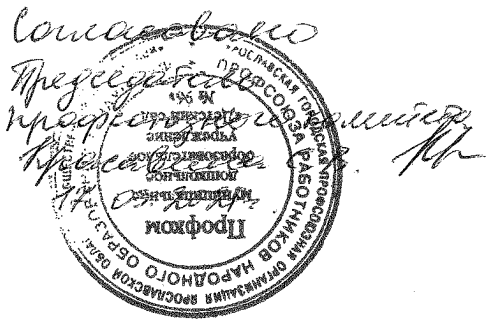 Согласовано
Председатель
профсоюзного комитета
ЯРОСЛАВСКАЯ ГОРОДСКАЯ ПРОФСОЮЗНАЯ ОРГАНИЗАЦИЯ ЯРОСЛАВСКОЙ
ПРОФСОЮЗА РАБОТНИКОВ НАРОДНОГО
Профком
муниципальное
дошкольное
образовательное
учреждение
«Детский сад
№ 96»